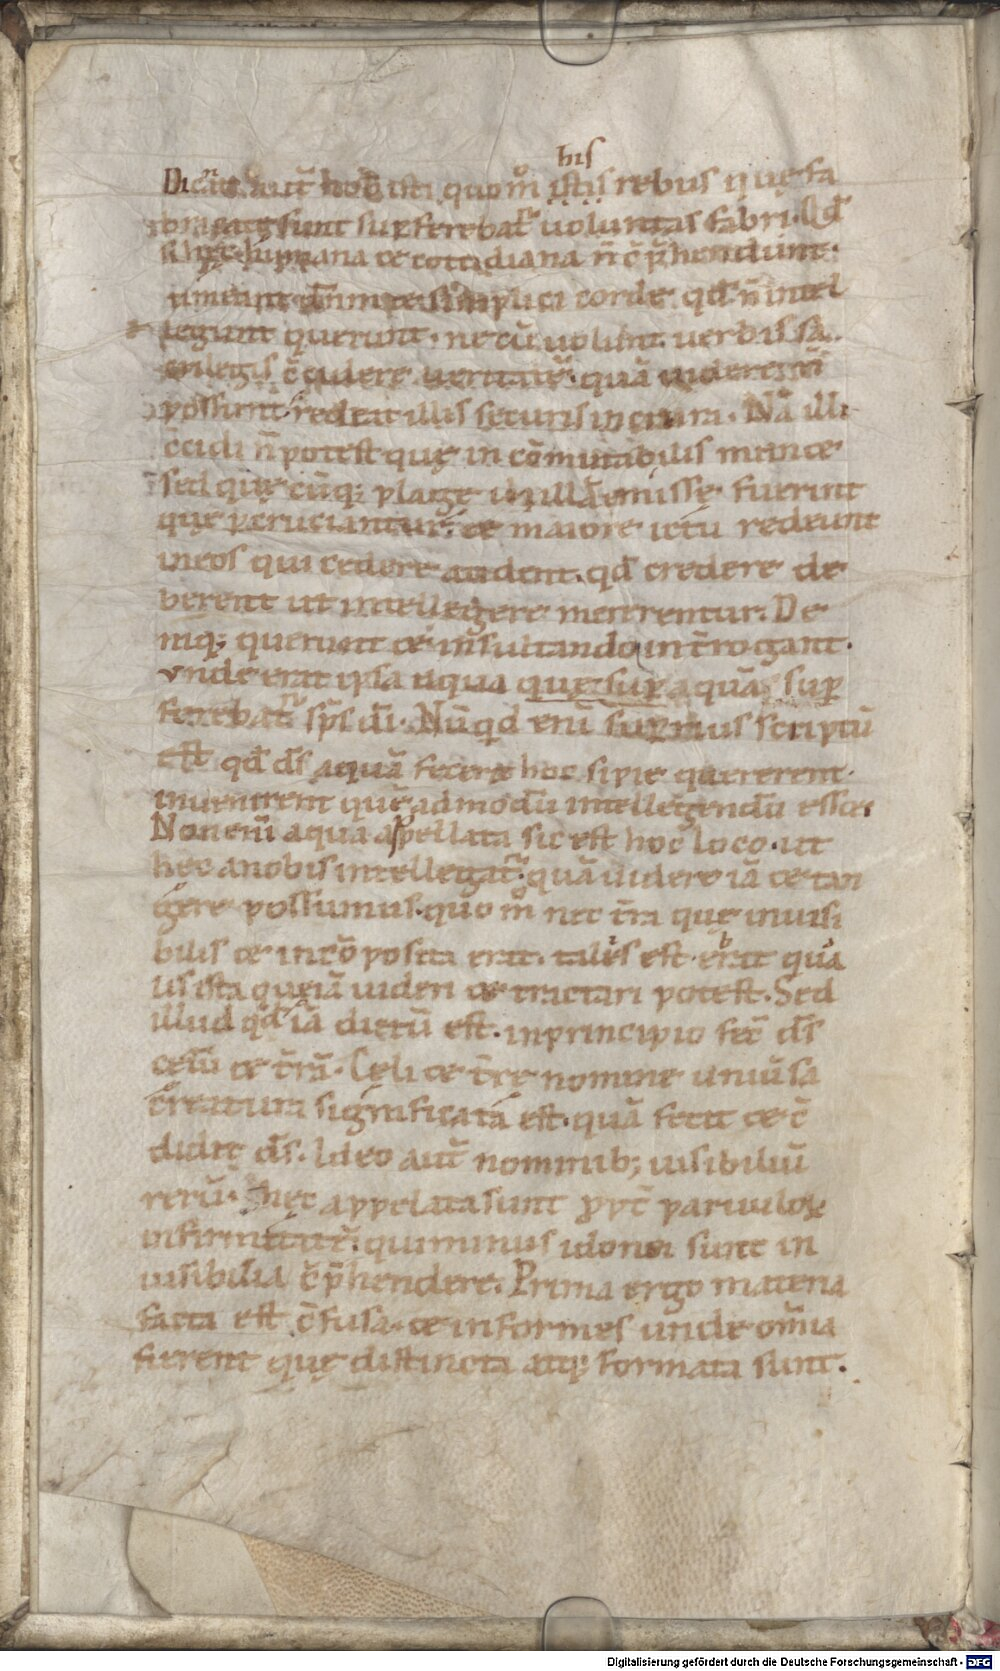 his
Dicant aut̄ nob̄ isti quom̊ istis rebus que fa
bricate sunt supferebat᷑ uoluntas fabri. Qd̄
si hęc humana ce cottidiana n̄ c̄p̄hendunt.
timeant dm̄ ce simplici corde qd̄ n̄ intel
legunt querant. ne cū uolunt uerbis sa
crilegis c̄cidere ueritatē quā uidere n̄
possunt redeat illis securis in crura. Nā illa
c̄cidi n̄ potest que in cōmutabilis manet
sed quęcūq; plage in illā emissę fuerint
ce maiore ictu redeunt
in eos qui cedere audent. qd̄ credere de
berent ut intellegere mererentur. De
niq; querunt ce insultando int̄rogant.
vnde erat ipsa aqua quę sup aquā sup
ferebat᷑ sp̄s dī. Nūqd enī superius scriptū
est qd̄ ds̄ aquā fecerit hoc si pie quererent.
inuenirent quēadmodū intellegendū esset.
Non enī aqua appellata sic est hoc loco. ut
hec a nobis intellegat᷑ quā uidere iā ce tan
gere possumus. quo m̊ nec t̄ra quę inuisi
bilis ce incōposita erat. talis est erat qua
lis ista quę iā uideri ce tractari potest. Sed
illud qd̄ iā dictū est. in principio fec̄ ds̄
celū ce t̄rā. Cęli ce t̄re nomine uniūsa
creatura significata est. quā fecit ce c̄
didit ds̄. Ideo aut̄ nominib; uisibiliū
rerū. hęc appelata sunt ppt̄ paruuloꝝ
infirmitatē. qui minus idonei sunt in
uisibilia c̄p̄hendere. Prima ergo materia
facta est c̄fusa. ce informes unde om̄ia
fierent que distincta atq; formata sunt.
Digitalisierung gefördert durch die Deutsche Forschungsgemeinschaft - DFG